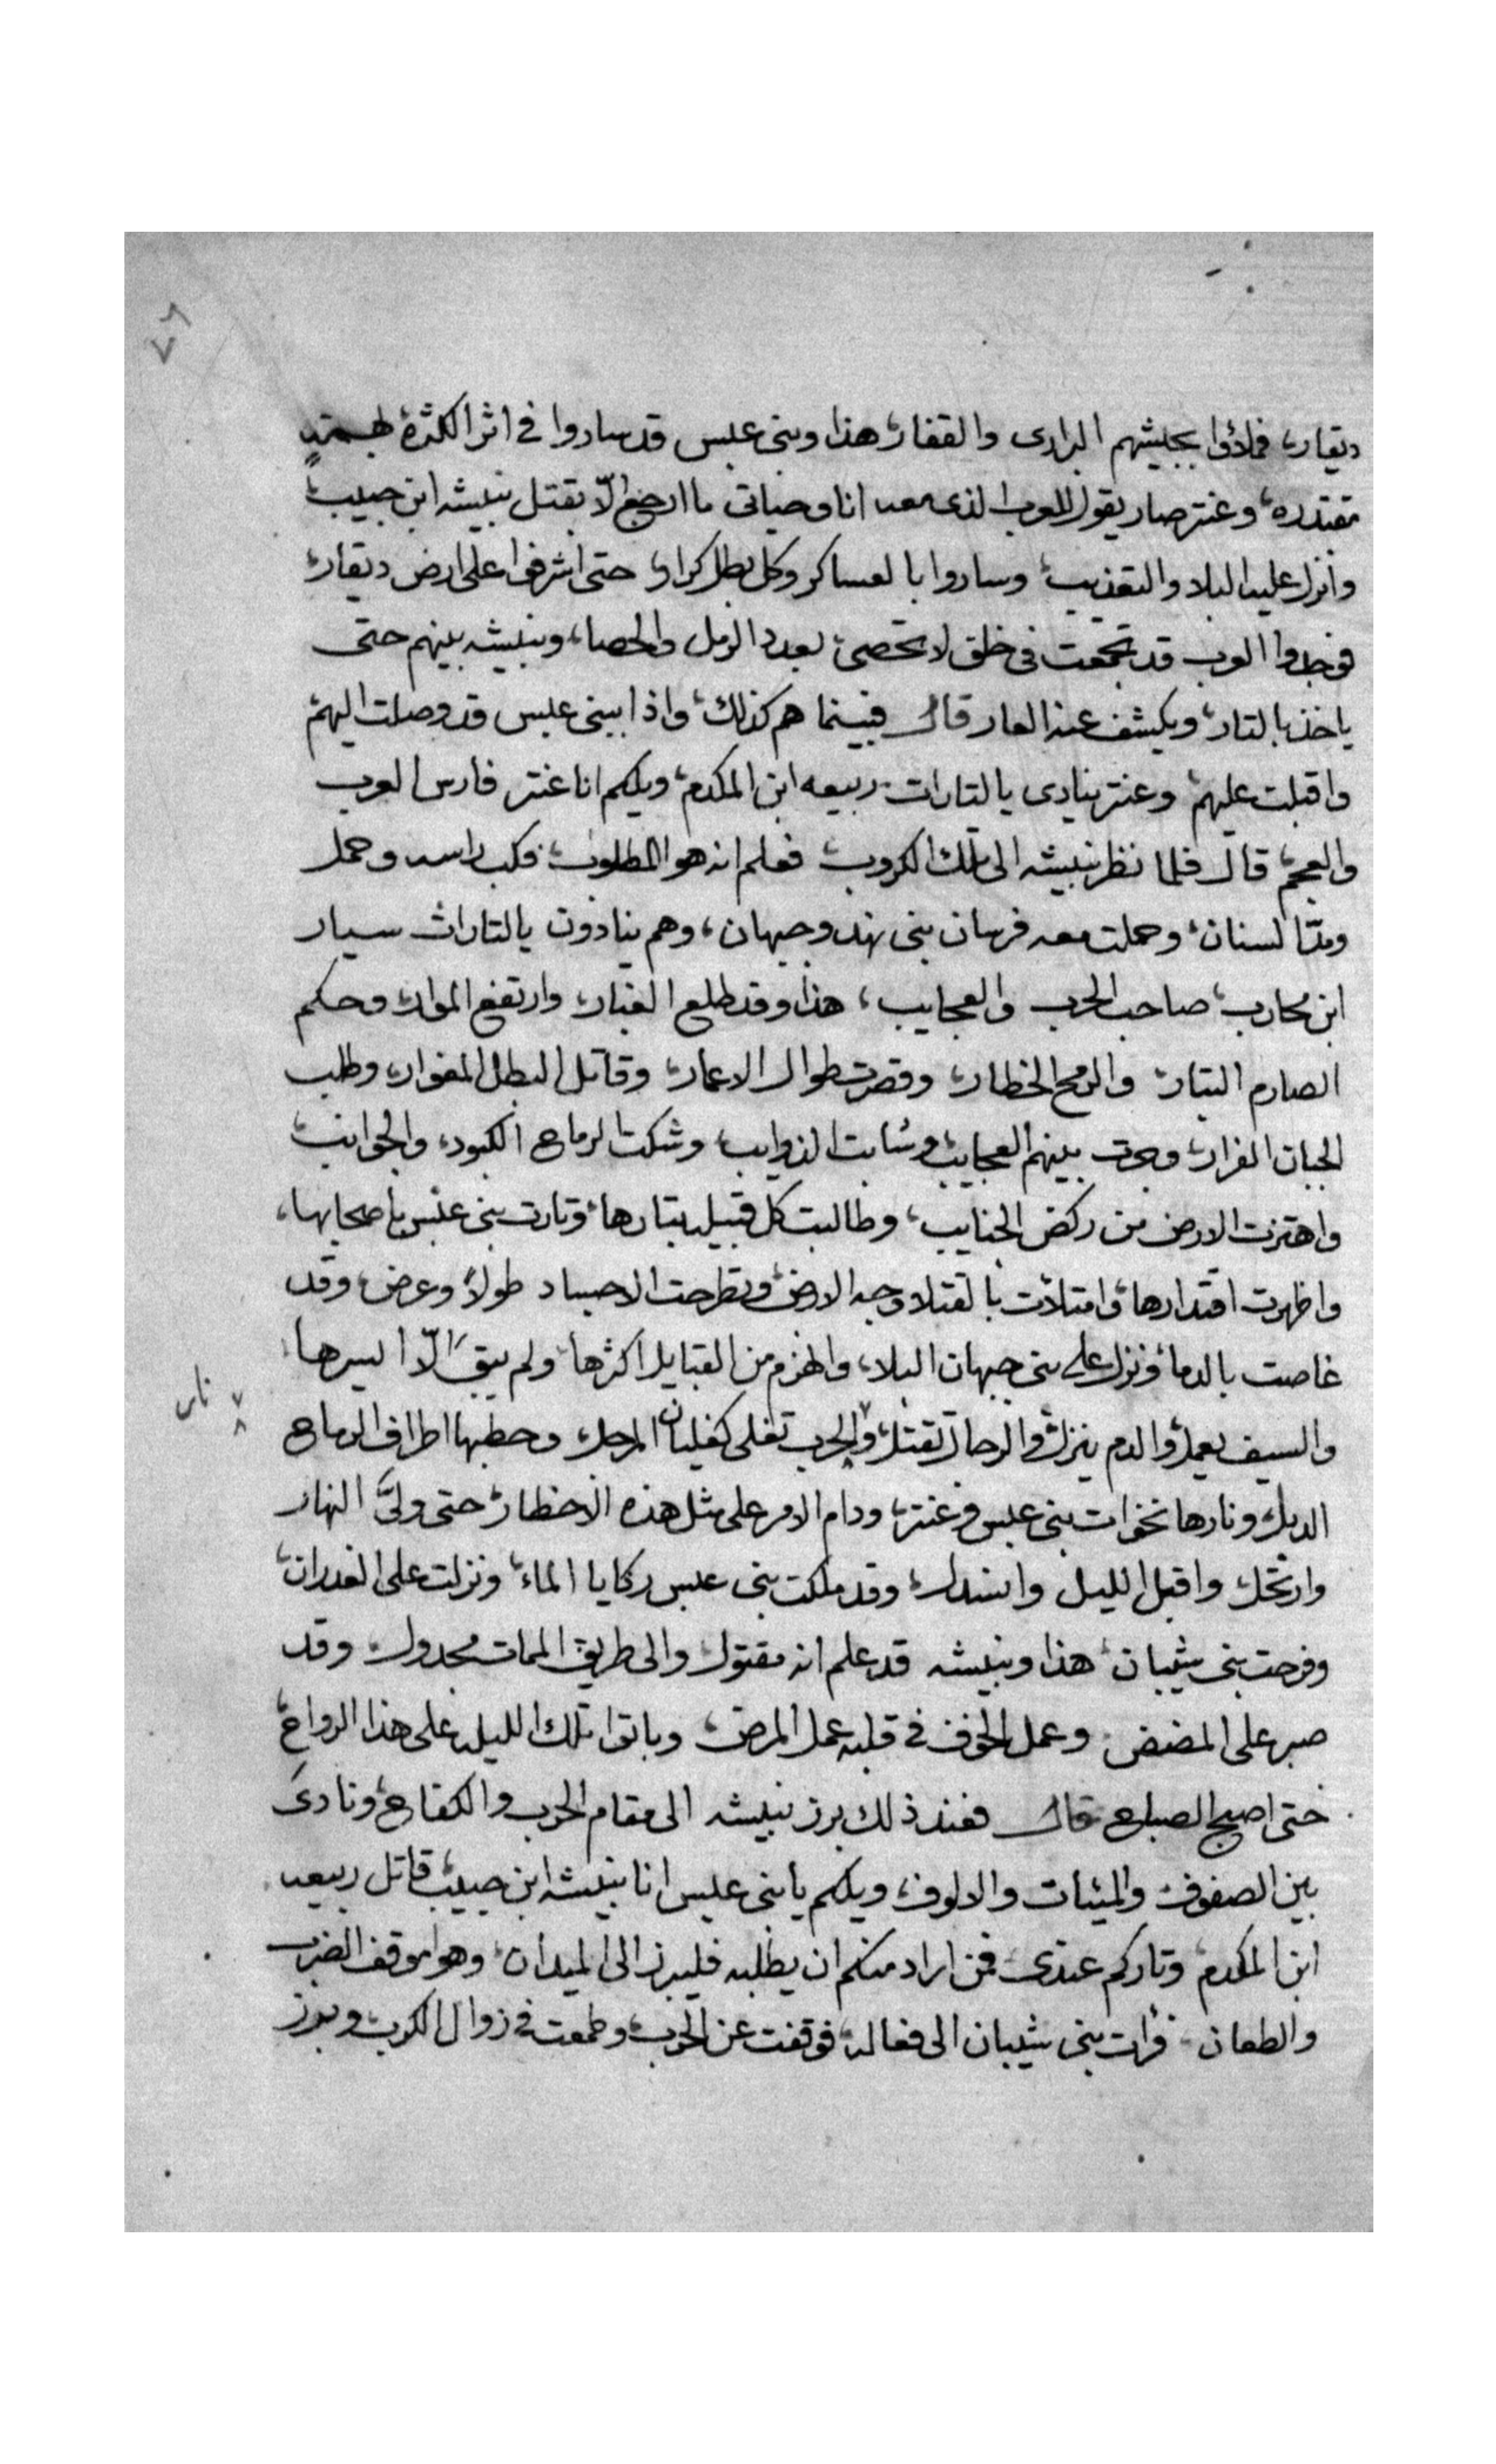 ٧٩
ديقار، فملاؤا بجيشهم البرارى والقفار، هذا وبنى عبس قد ساروا فى اثر الكثرة بهمة
مقتدره، وعنتر صار يقول للعرب الذى معه انا وحياتى ما ارجع الّا بقتل نبيشه ابن حبيب،
وانزل عليه البلا والتعذيب، وساروا بالعساكر وكل بطل كرار، حتى اشرفوا على ارض ديقار،
فوجدوا العرب قد تجمعت فى خلق لا تحصى، بعدد الرمل والحصا، ونبيشه بينهم حتى
ياخذ بالتار، ويكشف عنه العار قال فبينما هم كذلك، واذا ببنى عبس قد وصلت اليهم
واقبلت عليهم، وعنتر ينادى يالتارات ربيعه ابن المكدم، ويلكم انا عنتر فارس العرب
والعجم، قال فلما نظر نبيشه الى تلك الكروب، فعلم انه هو المطلوب، فكب راسه وحمل
ومدّ السنان، وحملت معه فرسان بنى نهد وجيهان، وهم ينادون يالتارات سيار
ابن محارب، صاحب الحرب والعجايب، هذا وقد طلع الغبار، وارتفع الموار، وحكم
الصارم البتار، والرمح الخطار، وقصرت طوال الاعمار، وقاتل البطل المغوار، وطلب
الجبان الفرار، وجرت بينهم العجايب، وشابت الذوايب، وشكت الرماح الكبود، والجوانب،
واهتزت الارض من ركض الجنايب، وطالبت كل قبيله بتارها، وتارت بنى عبس باصحابها،
واظهرت اقتدارها، وامتلأت بالقتلا وجه الارض، وتطرحت الاجساد طولاً وعرض، وقد
غاصت بالدما، ونزل على بنى جيهان البلا، وانهزم من القبايل اكثرها، ولم يبقَ الّا ايسرها
والسيف يعمل، والدم ينزل، والرجال تقتل، والحرب تغلى كغليان المرجل، وحطبها اطراف الرماح
الدبل، ونارها نخوات بنى عبس وعنتر، ودام الامر على مثل هذه الاخطار، حتى ولىَّ النهار
وارتحل، واقبل الليل وانسدل، وقد ملكت بنى عبس ركايا الماء، ونزلت على الغدران،
وفرحت بنى شيبان، هذا ونبيشه قد علم انه مقتول، والى طريق الممات مجدول، وقد
صبر على المضض، وعمل الخوف فى قلبه عمل المرض، وباتوا تلك الليله على هذا الرواح،
حتى اصبح الصباح قال فعند ذلك برز نبيشه الى مقام الحرب والكفاح، ونادى
بين الصفوف، والميئات والالوف، ويلكم يا بنى عبس انا نبيشه ابن حبيب، قاتل ربيعه
ابن المكدم، وتاركم عندى، فمن اراد منكم ان يطلبه فليبرز الى الميدان، وهو موقف الضرب
والطعان، فرأت بنى شيبان الى فعاله، فوقفت عن الحرب، وطمعت فى زوال الكرب، وبرز